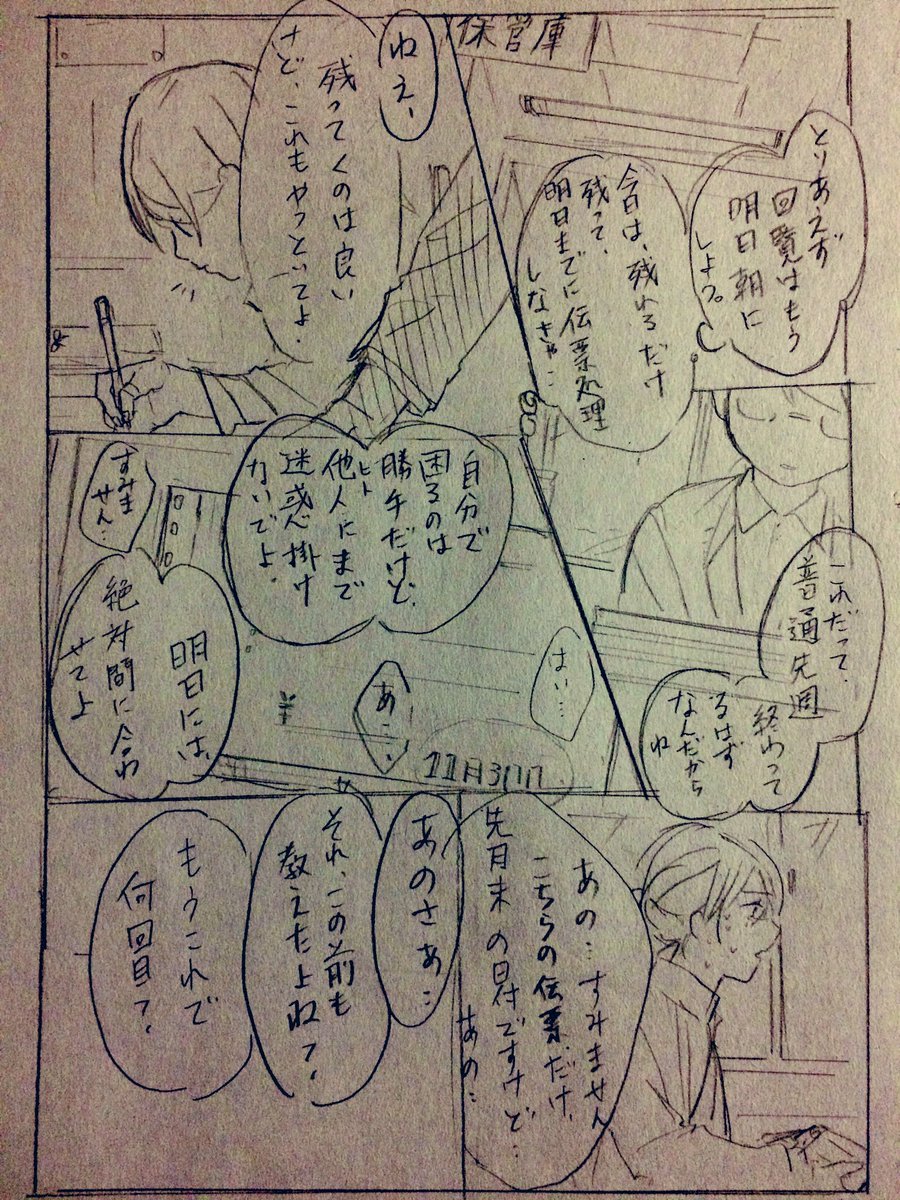 保管庫
とりあえず
回覧はもう
明日朝に
しよう。
今日は、残れるだけ
残って、
明日までに伝票処理
しなきゃ…
ねえ、
残ってくのは良い
けど、これもやっといてよ。
これだって、
普通先週
終わって
るはず
なんだから
ね
はい…
自分で
困るのは
勝手だけど、
他人にまで
ヒト
迷惑掛け
ないでよ。
あ…、
すみま
せん…
明日には、
絶対間に合わ
せてよ
¥
11月3
あの…すみません
こちらの伝票だけ、
先月末の日付ですけど…
あの…
あのさぁ…
それ、この前も
教えたよね？
もうこれで
何回目？